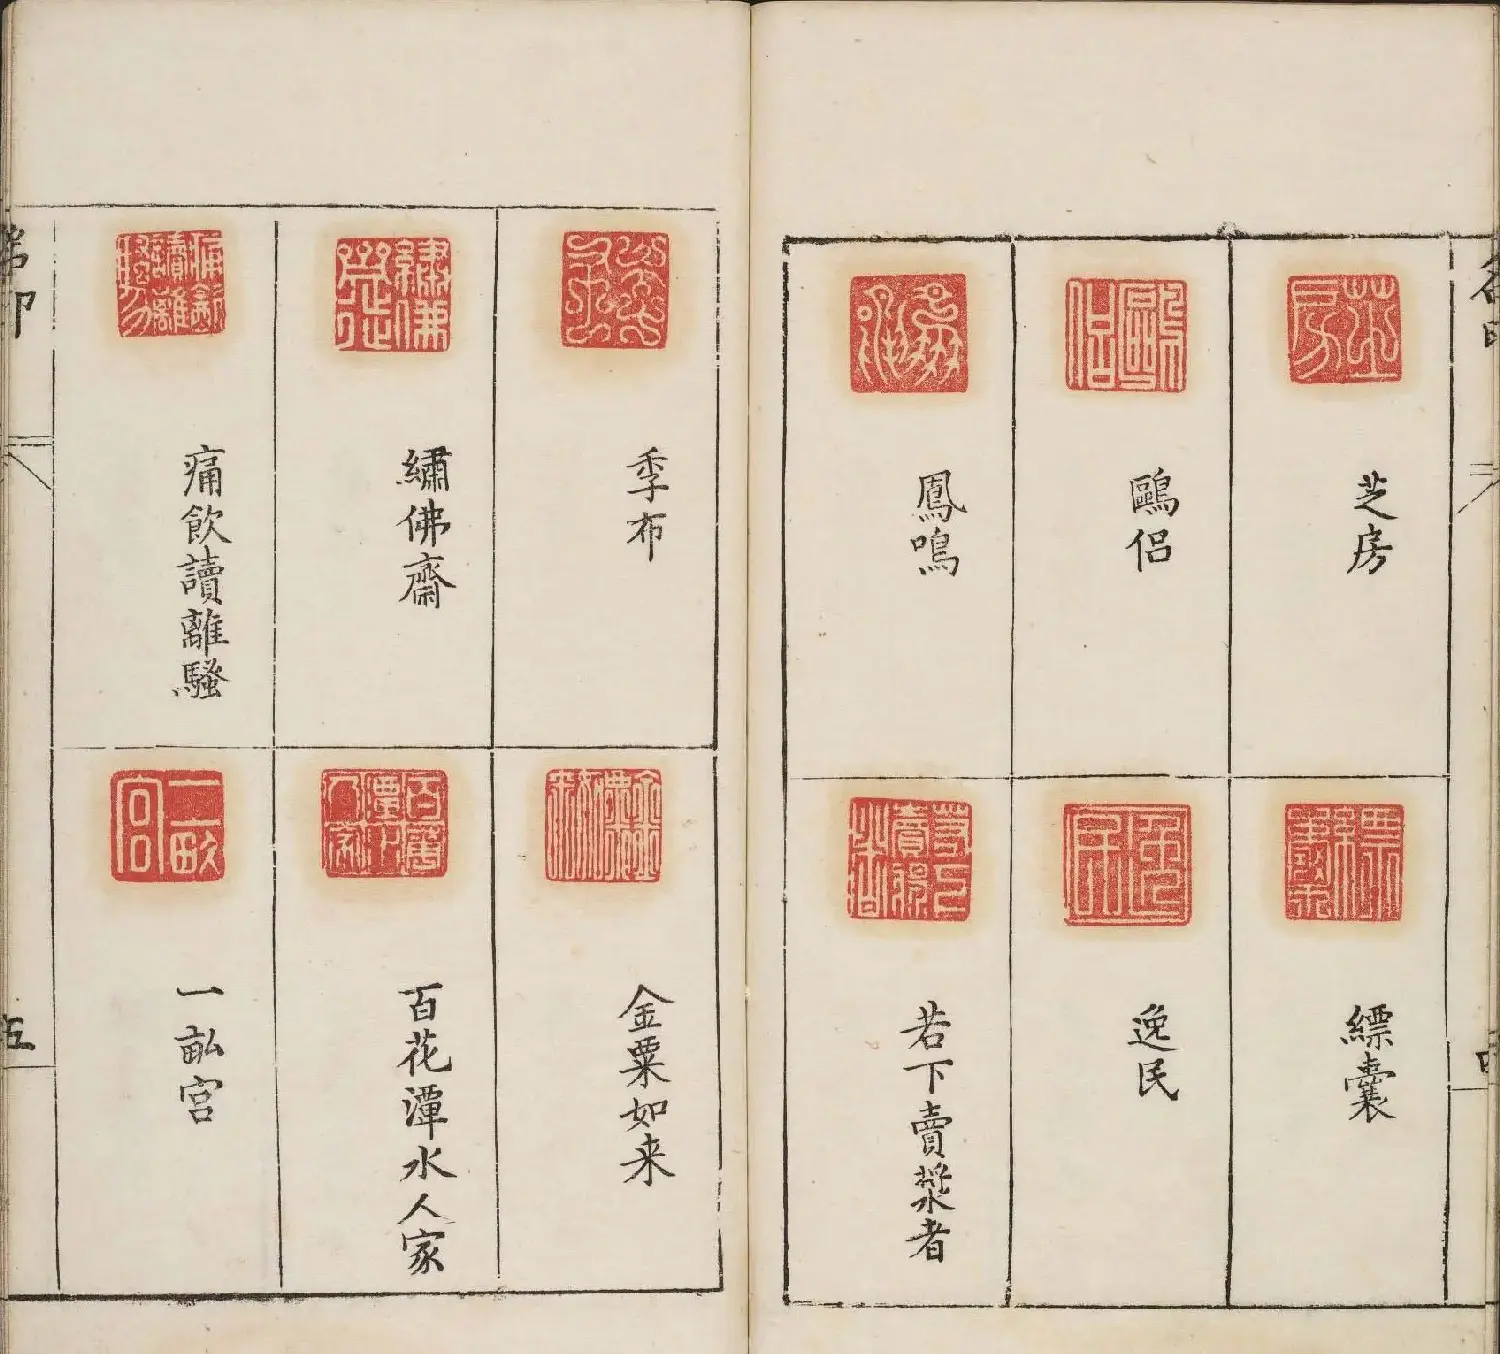 芝房
鷗侶
鳳鳴
縹囊
逸民
若下賣漿者
季布
繡佛齋
痛飲讀離騷
金粟如来
百花潭水人家
一畝宮
五